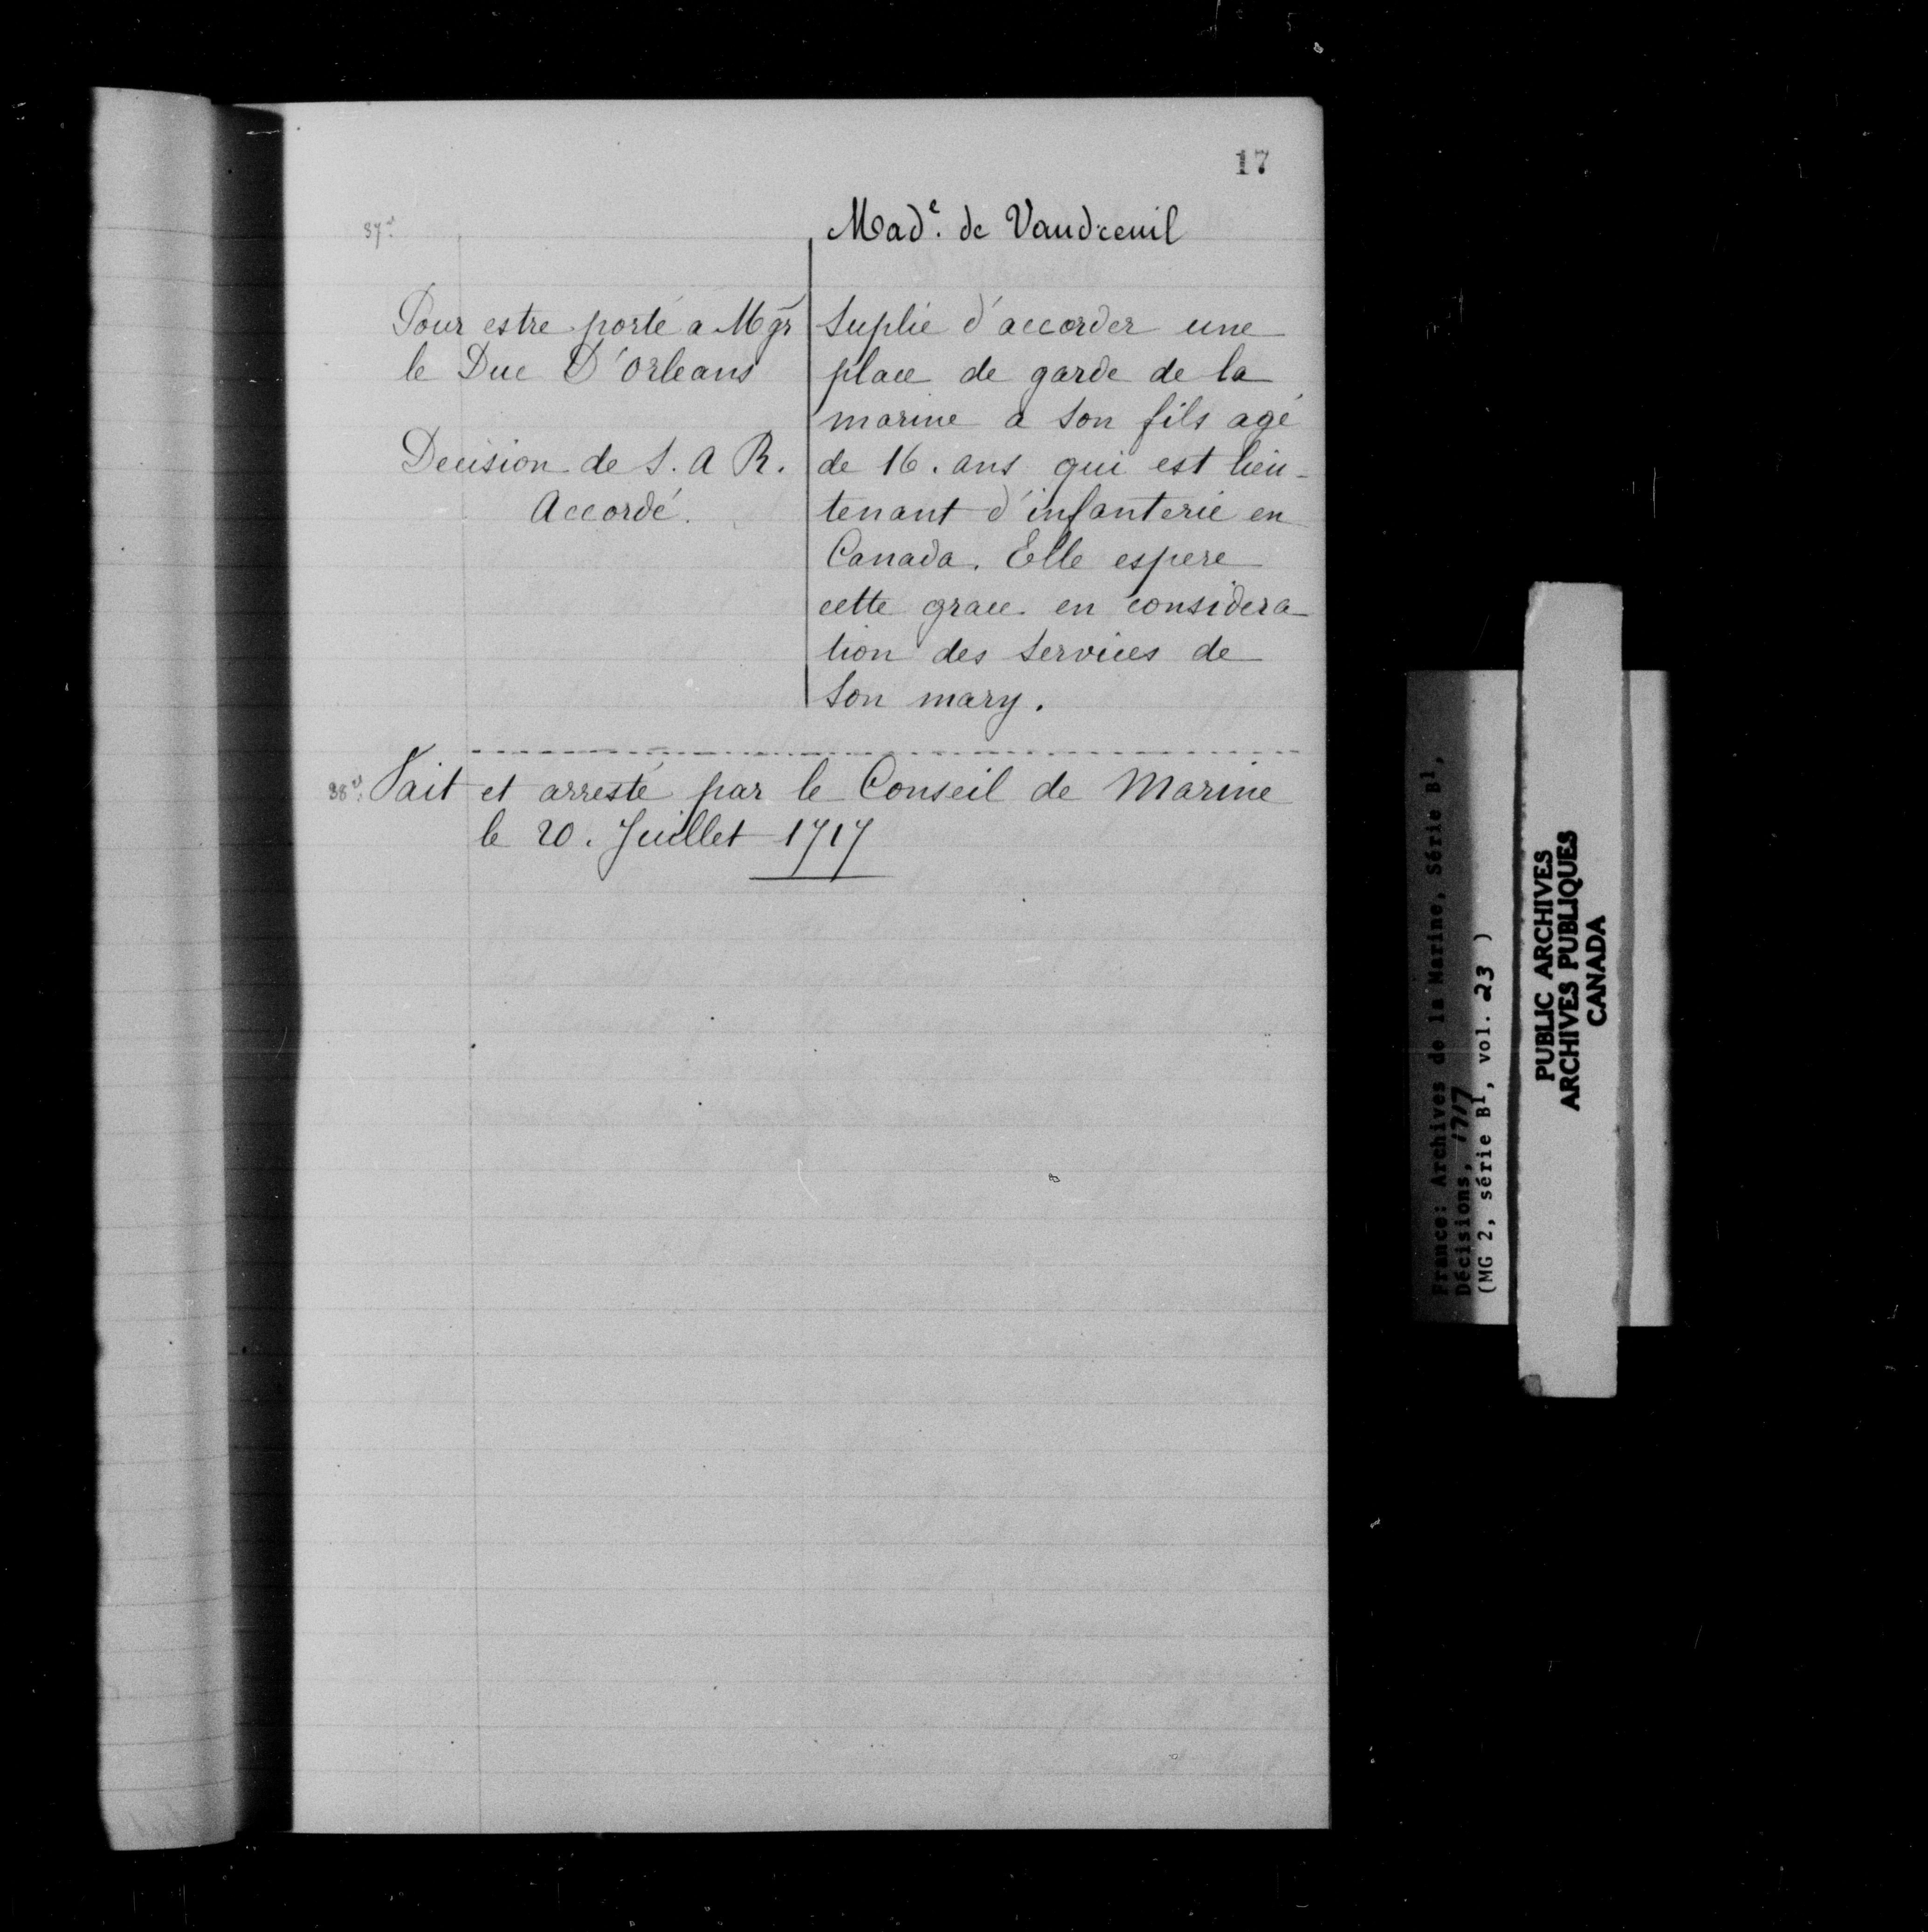 17
37v.
Made. de Vaudreuil
Pour estre porté a Mgr
le Duc D'Orleans
Decision de S. A R.
Accordé.
Suplie d'accorder une
place de garde de la
marine a son fils agé
de 16. ans qui est lieu-
tenant d'infanterie en
Canada. Elle espere
cette grace en considera-
tion des services de
son mary.
38v. Fait et arresté par le Conseil de Marine
le 20. Juillet 1717
France: Archives de la Marine, Série B1,
Décisions, 1717
(MG 2, série B1, vol. 23 )
PUBLIC ARCHIVES
ARCHIVES PUBLIQUES
CANADA